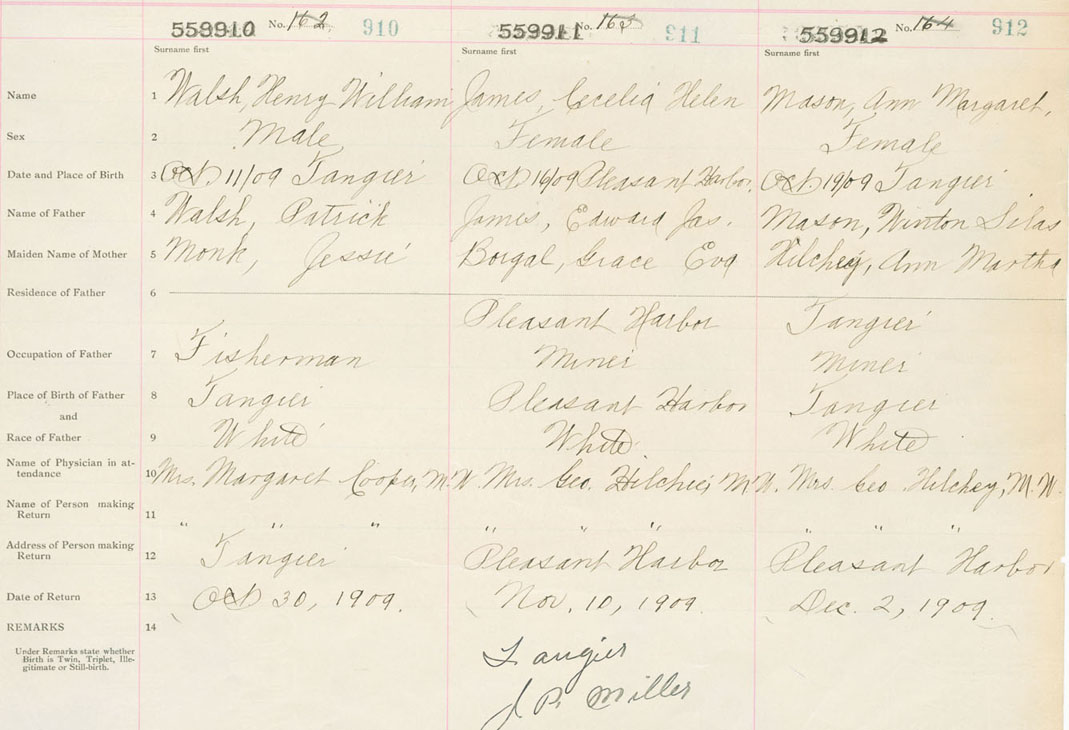 559910 No. 162 910 559911 No. 163 911 559912 No. 164 912
Surname first Surname first Surname first
Name 1 Walsh, Henry William James, Cecelia Helen Mason, Ann Margaret,
Sex 2 Male Female Female
Date and Place of Birth 3 Oct 11/09 Tangier Oct 16/09 Pleasant Harbor. Oct 19/09 Tangier
Name of Father 4 Walsh, Patrick James, Edward Jas. Mason, Winton Silas
Maiden Name of Mother 5 Monk, Jessie Borgal, Grace Eva Hilchey, Ann Martha
Residence of Father 6
Pleasant Harbor Tangier
Occupation of Father 7 Fisherman Miner Miner
Place of Birth of Father 8 Tangier Pleasant Harbor Tangier
and
Race of Father 9 White White White
Name of Physician in at-
tendance 10 Mrs. Margaret Cooper, M.W. Mrs. Geo. Hilchie, M.W. Mrs. Geo Hilchey, M.W.
Name of Person making
Return 11 " " " " " " " " "
Address of Person making
Return 12 Tangier Pleasant Harbor Pleasant Harbor
Date of Return 13 Oct 30, 1909. Nov. 10, 1909. Dec. 2, 1909.
REMARKS 14
Under Remarks state whether
Birth is Twin, Triplet, Ille-
gitimate or Still-birth.
Tangier
J P. Miller